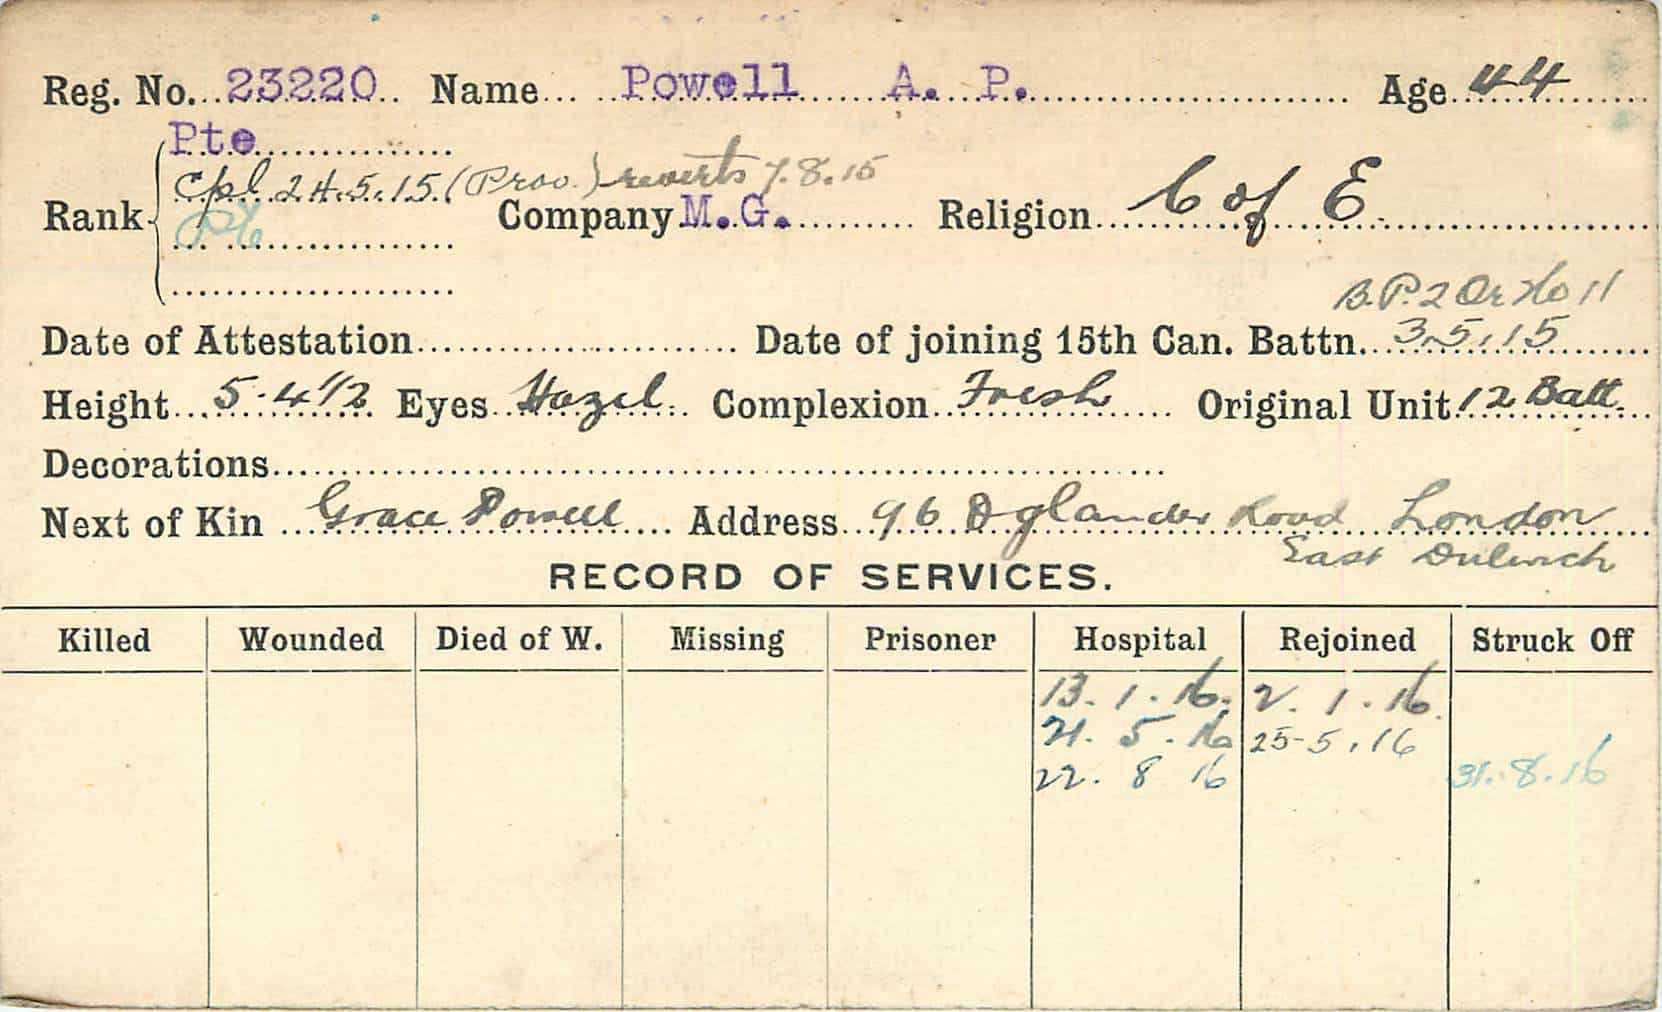 Reg. No. 23220 Name Powell A. P. Age 44
Pte
Cpl 24.5.15 (Prov.) reverts 7.8.15
Rank Pte Company M.G. Religion C of E.
B.P. 2 Or No 11
Date of Attestation Date of joining 15th Can. Battn. 3.5.15
Height 5-4 1/2 Eyes Hazel Complexion Fresh Original Unit 12 Batt.
Decorations
Next of Kin Grace Powell Address 96 Oglander Road London
East Dulwich
RECORD OF SERVICES.
Killed Wounded Died of W. Missing Prisoner Hospital Rejoined Struck Off
13. 1. 16. 2. 1. 16.
21. 5. 16 25-5.16
22. 8 16 31.8.16